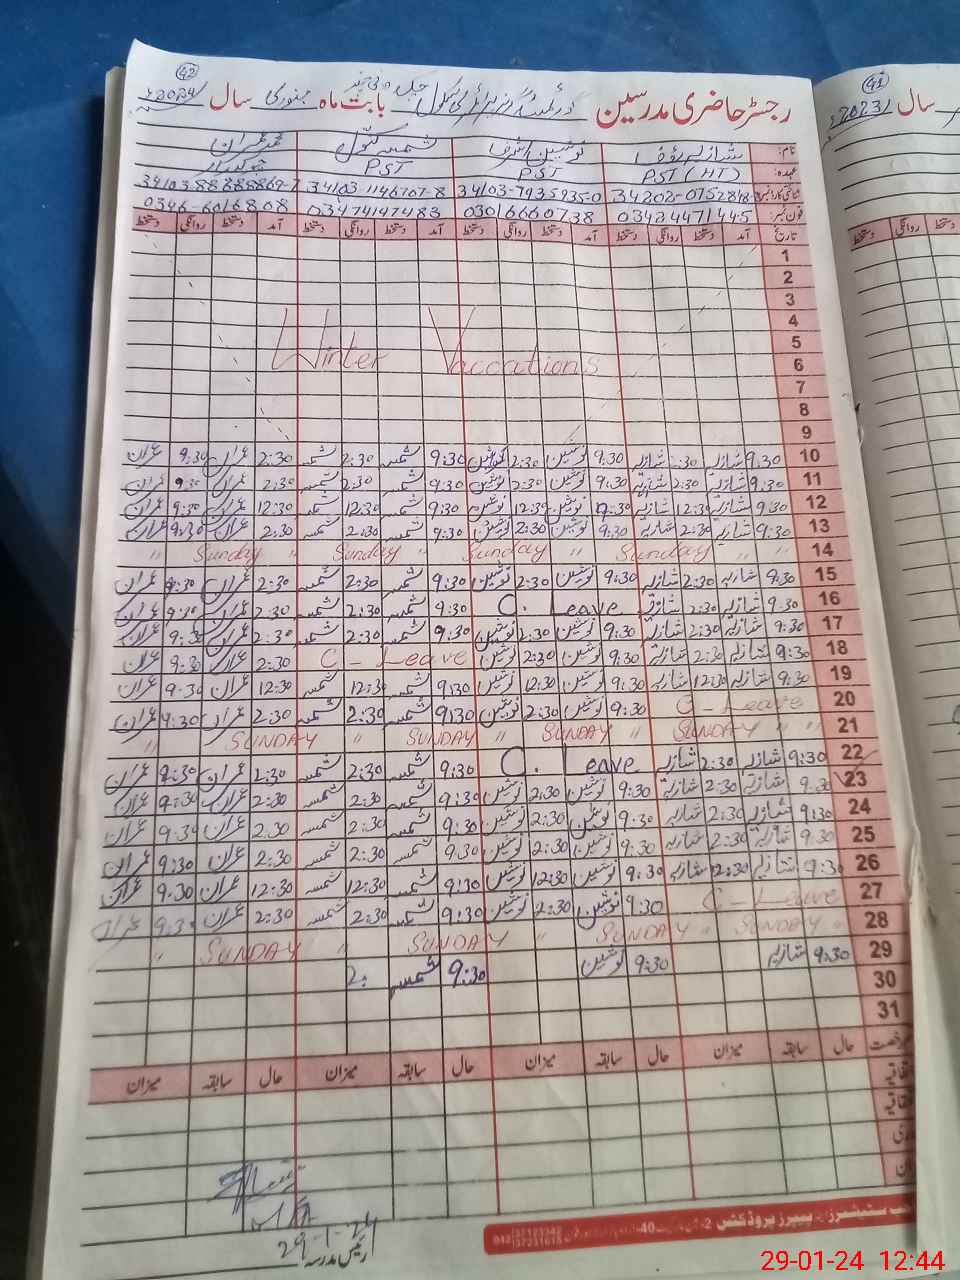 42
رجسٹر حاضری مدرسین گورنمنٹ گرلز پرائمری سکول چک بابت ماہ جنوری سال 2024ء
نام: شازیہ رؤف نوشین اشرف شمسہ کنول محمد عمران
عہدہ: PST (HT) PST PST چوکیدار
شناختی کارڈ نمبر 34202-0752848- 34103-7935935-0 34103-1146707-8 34103-8828886
فون نمبر: 03424471445 03016660738 03474147483 0346-6016808
تاریخ آمد دستخط روانگی دستخط آمد دستخط روانگی دستخط آمد دستخط روانگی دستخط آمد دستخط روانگی دستخط
1
2
3
4
5
6
Winter Vaccations
7
8
9
10 9:30 شازیہ 2:30 شازیہ 9:30 نوشین 2:30 نوشین 9:30 شمسہ 2:30 شمسہ 2:30 عمران 9:30 عمران
11 9:30 شازیہ 2:30 شازیہ 9:30 نوشین 2:30 نوشین 9:30 شمسہ 2:30 شمسہ 2:30 عمران 9:30 عمران
12 9:30 شازیہ 12:30 شازیہ 9:30 نوشین 12:30 نوشین 9:30 شمسہ 12:30 شمسہ 12:30 عمران 9:30 عمران
13 9:30 شازیہ 2:30 شازیہ 9:30 نوشین 2:30 نوشین 9:30 شمسہ 2:30 شمسہ 2:30 عمران 9:30 عمران
14 " " Sunday " Sunday " Sunday " Sunday "
15 9:30 شازیہ 2:30 شازیہ 9:30 نوشین 2:30 نوشین 9:30 شمسہ 2:30 شمسہ 2:30 عمران 9:30 عمران
16 9:30 شازیہ 2:30 شازیہ C. Leave 9:30 شمسہ 2:30 شمسہ 2:30 عمران 9:30 عمران
17 9:30 شازیہ 2:30 شازیہ 9:30 نوشین 2:30 نوشین 9:30 شمسہ 2:30 شمسہ 2:30 عمران 9:30 عمران
18 9:30 شازیہ 2:30 شازیہ 9:30 نوشین 2:30 نوشین C - Leave 2:30 عمران 9:30 عمران
19 9:30 شازیہ 12:30 شازیہ 9:30 نوشین 12:30 نوشین 9:30 شمسہ 12:30 شمسہ 12:30 عمران 9:30 عمران
20 C - Leave 9:30 نوشین 2:30 نوشین 9:30 شمسہ 2:30 شمسہ 2:30 عمران 9:30 عمران
21 " " SUNDAY " SUNDAY " SUNDAY " SUNDAY "
22 9:30 شازیہ 2:30 شازیہ C. Leave 9:30 شمسہ 2:30 شمسہ 2:30 عمران 9:30 عمران
23 9:30 شازیہ 2:30 شازیہ 9:30 نوشین 2:30 نوشین 9:30 شمسہ 2:30 شمسہ 2:30 عمران 9:30 عمران
24 9:30 شازیہ 2:30 شازیہ 9:30 نوشین 2:30 نوشین 9:30 شمسہ 2:30 شمسہ 2:30 عمران 9:30 عمران
25 9:30 شازیہ 2:30 شازیہ 9:30 نوشین 2:30 نوشین 9:30 شمسہ 2:30 شمسہ 2:30 عمران 9:30 عمران
26 9:30 شازیہ 12:30 شازیہ 9:30 نوشین 12:30 نوشین 9:30 شمسہ 12:30 شمسہ 12:30 عمران 9:30 عمران
27 C - Leave 9:30 نوشین 2:30 نوشین 9:30 شمسہ 2:30 شمسہ 2:30 عمران 9:30 عمران
28 SUNDAY " SUNDAY " SUNDAY " SUNDAY "
29 9:30 شازیہ 9:30 نوشین 9:30 شمسہ
30
31
رخصت حال سابقہ میزان حال سابقہ میزان حال سابقہ میزان
29-1-24
رئیس مدرسہ
پیپرز پروڈکشن
41
سال 2023ء
دستخط روانگی دستخط
29-01-24 12:44